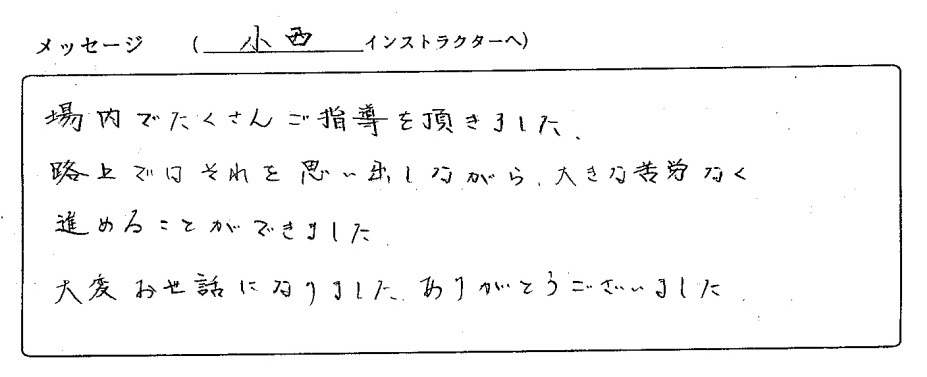 メッセージ （ 小西 インストラクターへ）
場内でたくさんご指導を頂きました、
路上ではそれを思い出しながら、大きな苦労なく
進めることができました
大変お世話になりました、ありがとうございました